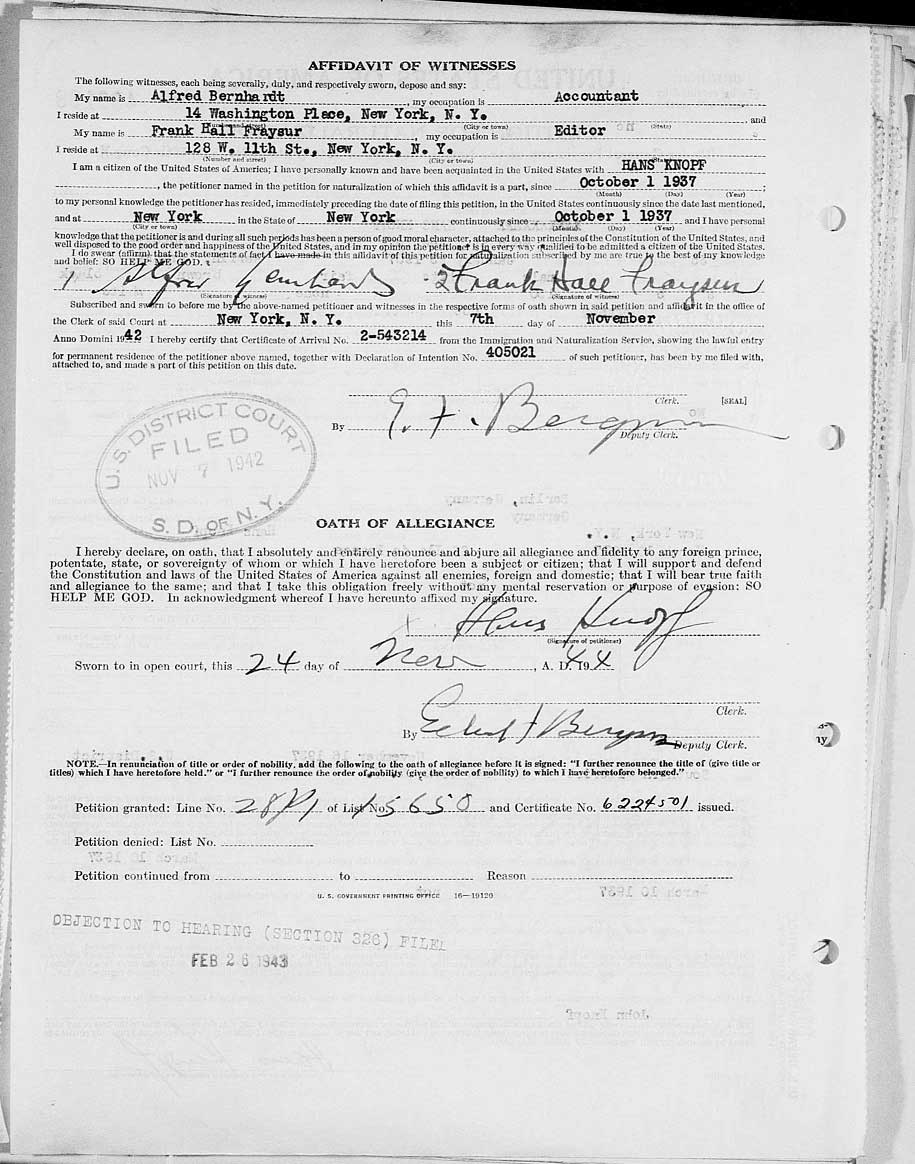 AFFIDAVIT OF WITNESSES
The following witnesses, each being severally, duly, and respectively sworn, depose and say:
My name is Alfred Bernhardt, my occupation is Accountant
I reside at 14 Washington Place, New York, N. Y. and
(Number and street) (City or town) (State)
My name is Frank Hall Fraysur, my occupation is Editor
I reside at 128 W. 11th St., New York, N. Y.
(Number and street) (City or town) (State)
I am a citizen of the United States of America; I have personally known and have been acquainted in the United States with HANS KNOPF
, the petitioner named in the petition for naturalization of which this affidavit is a part, since October 1 1937;
(Month) (Day) (Year)
to my personal knowledge the petitioner has resided, immediately preceding the date of filing this petition, in the United States continuously since the date last mentioned,
and at New York in the State of New York continuously since October 1 1937 and I have personal
(City or town) (Month) (Day) (Year)
knowledge that the petitioner is and during all such periods has been a person of good moral character, attached to the principles of the Constitution of the United States, and
well disposed to the good order and happiness of the United States, and in my opinion the petitioner is in every way qualified to be admitted a citizen of the United States.
I do swear (affirm) that the statements of fact I have made in this affidavit of this petition for naturalization subscribed by me are true to the best of my knowledge
and belief: SO HELP ME GOD.
1 Alfred Bernhardt 2 Frank Hall Fraysur
(Signature of witness) (Signature of witness)
Subscribed and sworn to before me by the above-named petitioner and witnesses in the respective forms of oath shown in said petition and affidavit in the office of
the Clerk of said Court at New York, N. Y. this 7th day of November
Anno Domini 1942 I hereby certify that Certificate of Arrival No. 2-543214 from the Immigration and Naturalization Service, showing the lawful entry
for permanent residence of the petitioner above named, together with Declaration of Intention No. 405021 of such petitioner, has been by me filed with,
attached to, and made a part of this petition on this date.
Clerk. [SEAL]
By E. F. Bergman
Deputy Clerk.
U. S. DISTRICT COURT
FILED
NOV 7 1942
S. D. OF N. Y.
OATH OF ALLEGIANCE
I hereby declare, on oath, that I absolutely and entirely renounce and abjure all allegiance and fidelity to any foreign prince,
potentate, state, or sovereignty of whom or which I have heretofore been a subject or citizen; that I will support and defend
the Constitution and laws of the United States of America against all enemies, foreign and domestic; that I will bear true faith
and allegiance to the same; and that I take this obligation freely without any mental reservation or purpose of evasion: SO
HELP ME GOD. In acknowledgment whereof I have hereunto affixed my signature.
Hans Knopf
(Signature of petitioner)
Sworn to in open court, this 24 day of Nov, A. D. 1944
Clerk.
By Bergman
Deputy Clerk.
NOTE.—In renunciation of title or order of nobility, add the following to the oath of allegiance before it is signed: "I further renounce the title of (give title or
titles) which I have heretofore held." or "I further renounce the order of nobility (give the order of nobility) to which I have heretofore belonged."
Petition granted: Line No. of List No. 5650 and Certificate No. 6224501 issued.
Petition denied: List No.
Petition continued from to Reason
U. S. GOVERNMENT PRINTING OFFICE 16—19120
OBJECTION TO HEARING (SECTION 326) FILE
FEB 26 1943